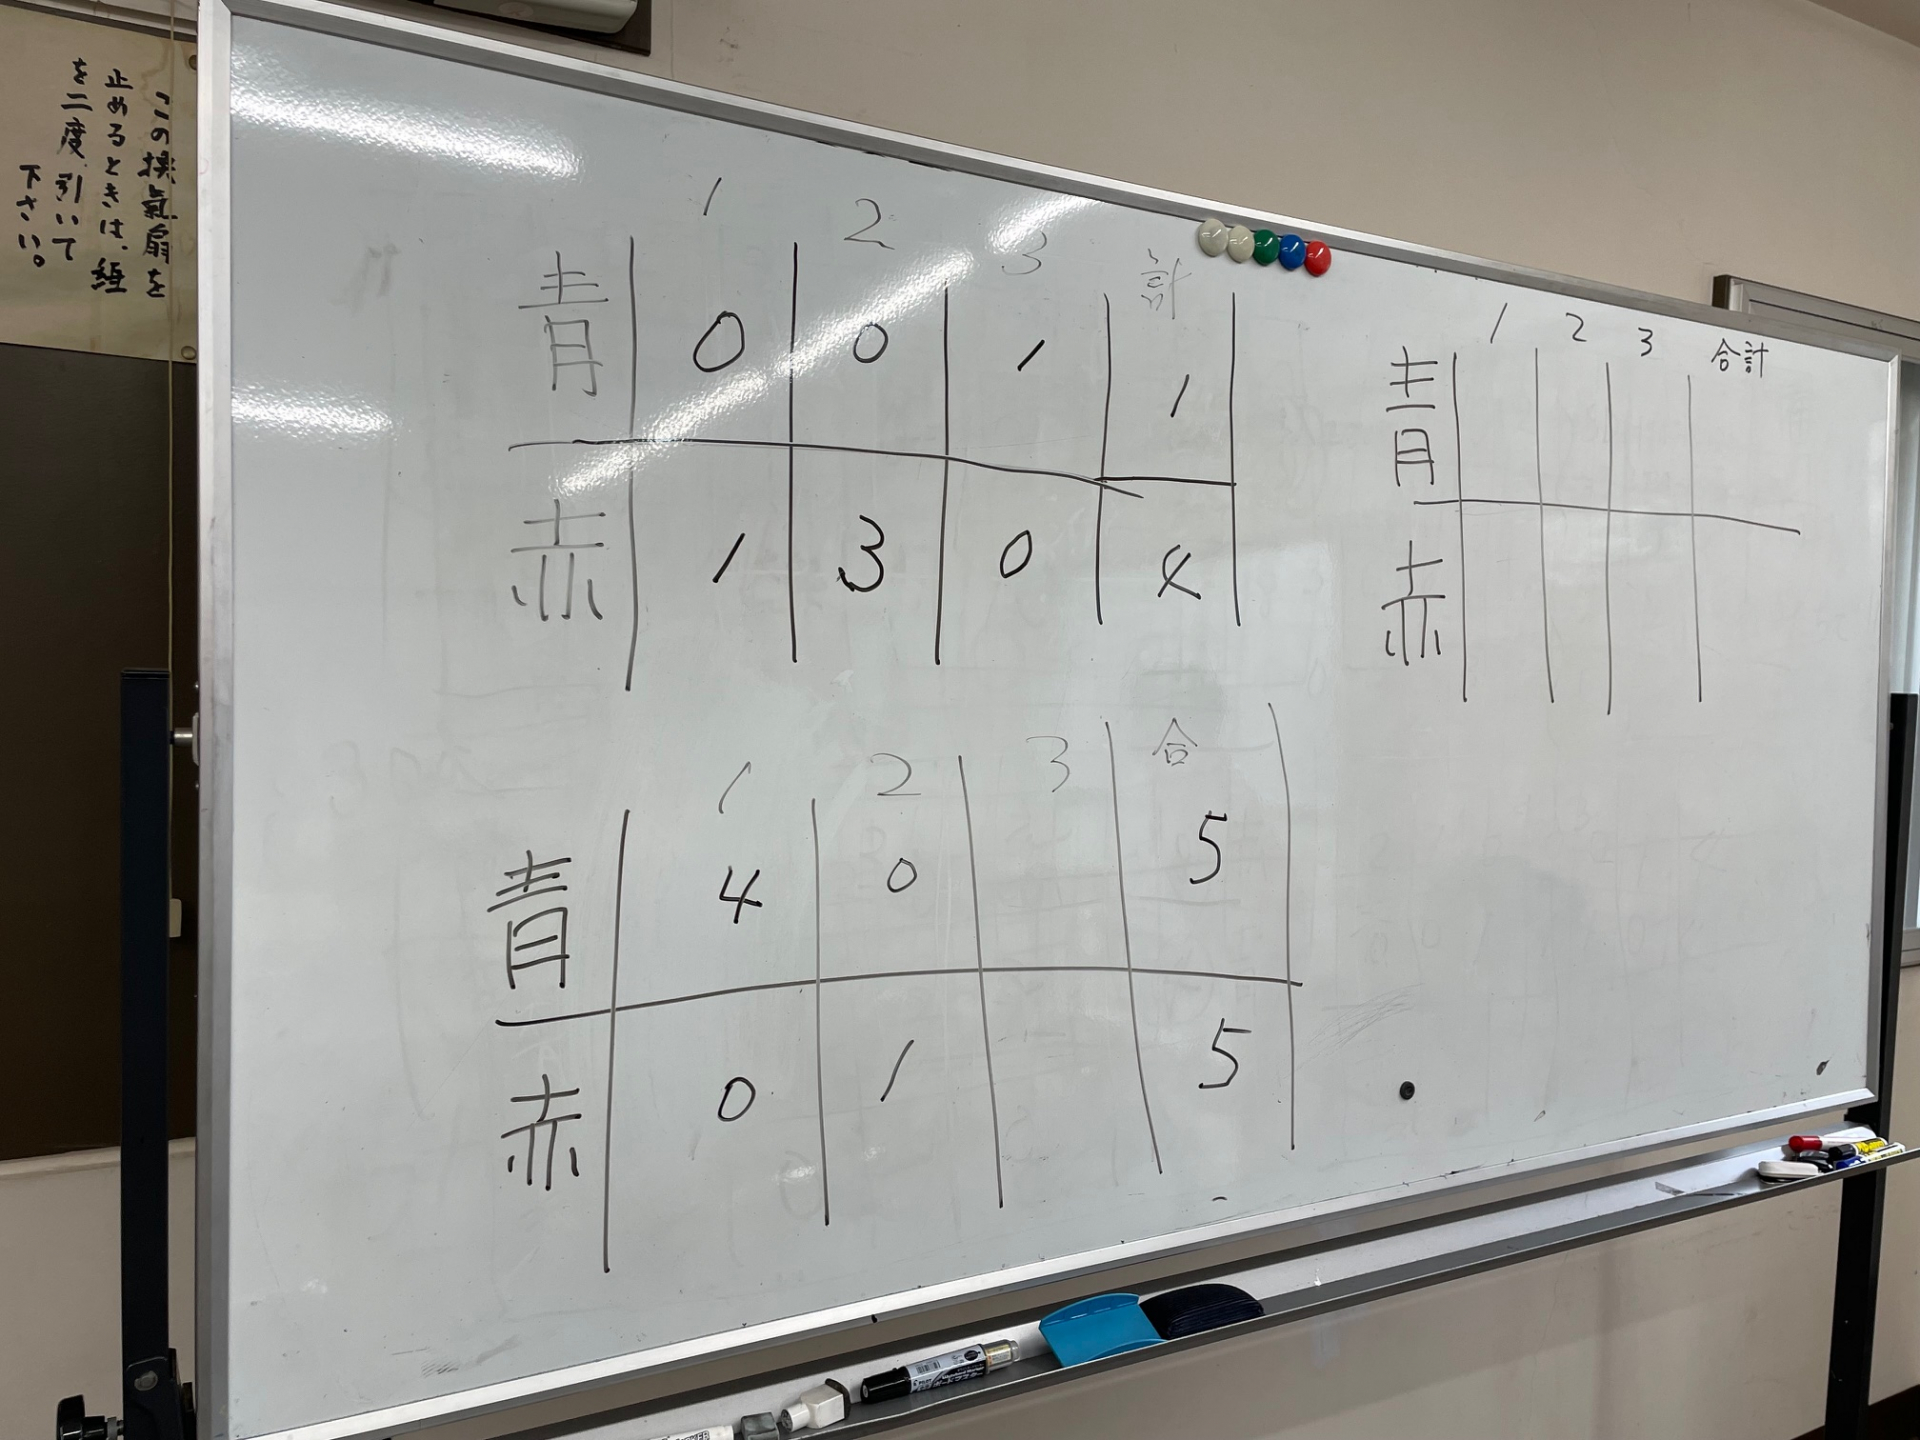 この換氣扇を
止めるときは、紐
を二度引いて
下さい。
1 2 3 計
青 0 0 1 1
赤 1 3 0 4
1 2 3 合計
青
赤
1 2 3 合
青 4 0 5
赤 0 1 5